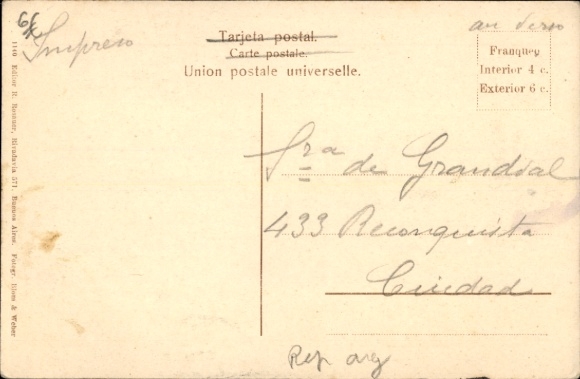 66
Impreso
Tarjeta postal.
Carte postale.
Union postale universelle.
au verso
Franqueo
Interior 4 c.
Exterior 6 c.
Sra de Grandval
433 Reconquista
Ciudad
Rep arg
1140 Editor R. Rosauer, Rivadavia 571, Buenos Aires. Fotogr. Blom & Weber